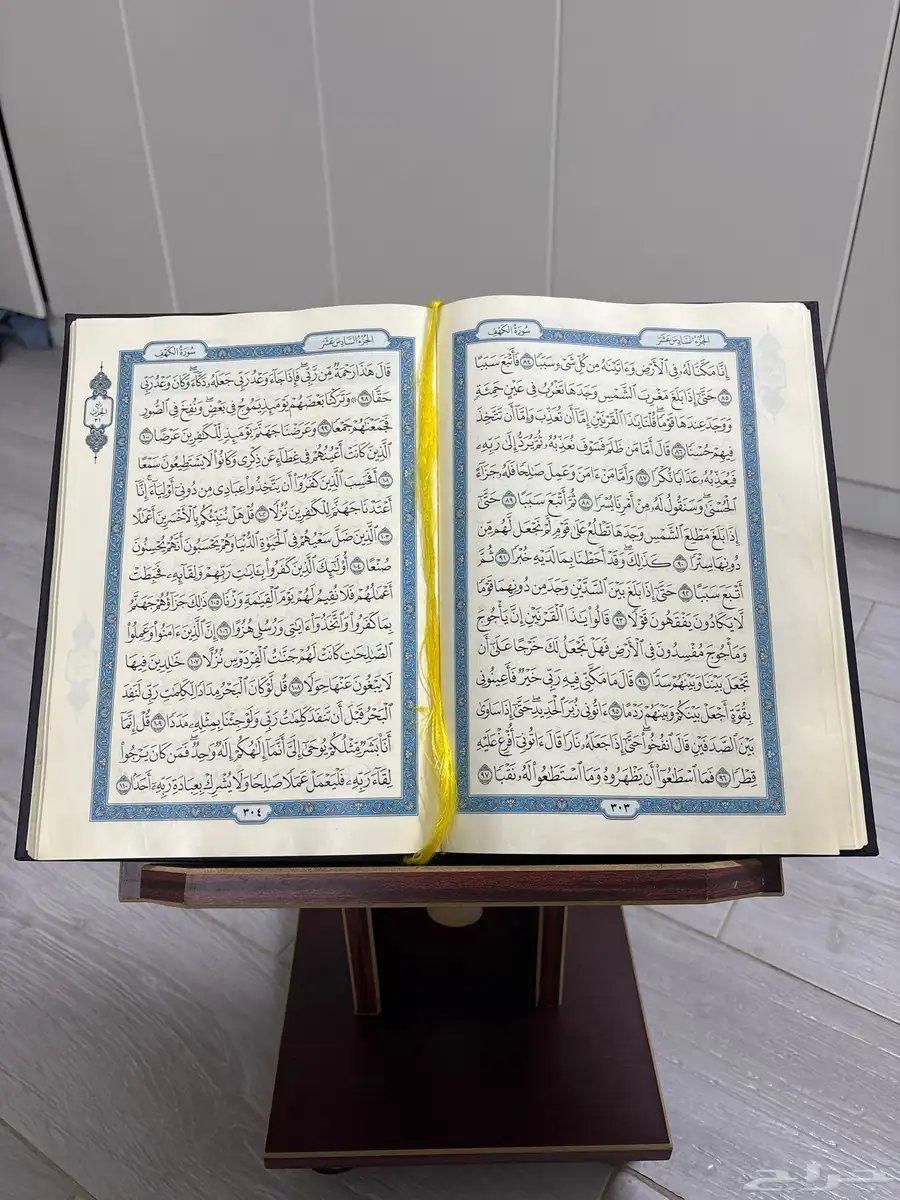 سُورَةُ الكَهْفِ
الجُزْءُ السَّادِسَ عَشَرَ
إِنَّا مَكَّنَّا لَهُۥ فِي ٱلۡأَرۡضِ وَءَاتَيۡنَٰهُ مِن كُلِّ شَيۡءٖ سَبَبٗا ٨٤ فَأَتۡبَعَ سَبَبًا
٨٥ حَتَّىٰٓ إِذَا بَلَغَ مَغۡرِبَ ٱلشَّمۡسِ وَجَدَهَا تَغۡرُبُ فِي عَيۡنٍ حَمِئَةٖ
وَوَجَدَ عِندَهَا قَوۡمٗاۖ قُلۡنَا يَٰذَا ٱلۡقَرۡنَيۡنِ إِمَّآ أَن تُعَذِّبَ وَإِمَّآ أَن تَتَّخِذَ
فِيهِمۡ حُسۡنٗا ٨٦ قَالَ أَمَّا مَن ظَلَمَ فَسَوۡفَ نُعَذِّبُهُۥ ثُمَّ يُرَدُّ إِلَىٰ رَبِّهِۦ
فَيُعَذِّبُهُۥ عَذَابٗا نُّكۡرٗا ٨٧ وَأَمَّا مَنۡ ءَامَنَ وَعَمِلَ صَٰلِحٗا فَلَهُۥ جَزَآءً
ٱلۡحُسۡنَىٰۖ وَسَنَقُولُ لَهُۥ مِنۡ أَمۡرِنَا يُسۡرٗا ٨٨ ثُمَّ أَتۡبَعَ سَبَبًا ٨٩ حَتَّىٰٓ
إِذَا بَلَغَ مَطۡلِعَ ٱلشَّمۡسِ وَجَدَهَا تَطۡلُعُ عَلَىٰ قَوۡمٖ لَّمۡ نَجۡعَل لَّهُم مِّن
دُونِهَا سِتۡرٗا ٩٠ كَذَٰلِكَۖ وَقَدۡ أَحَطۡنَا بِمَا لَدَيۡهِ خُبۡرٗا ٩١ ثُمَّ
أَتۡبَعَ سَبَبًا ٩٢ حَتَّىٰٓ إِذَا بَلَغَ بَيۡنَ ٱلسَّدَّيۡنِ وَجَدَ مِن دُونِهِمَا قَوۡمٗا
لَّا يَكَادُونَ يَفۡقَهُونَ قَوۡلٗا ٩٣ قَالُواْ يَٰذَا ٱلۡقَرۡنَيۡنِ إِنَّ يَأۡجُوجَ
وَمَأۡجُوجَ مُفۡسِدُونَ فِي ٱلۡأَرۡضِ فَهَلۡ نَجۡعَلُ لَكَ خَرۡجًا عَلَىٰٓ أَن
تَجۡعَلَ بَيۡنَنَا وَبَيۡنَهُمۡ سَدّٗا ٩٤ قَالَ مَا مَكَّنِّي فِيهِ رَبِّي خَيۡرٞ فَأَعِينُونِي
بِقُوَّةٍ أَجۡعَلۡ بَيۡنَكُمۡ وَبَيۡنَهُمۡ رَدۡمًا ٩٥ ءَاتُونِي زُبَرَ ٱلۡحَدِيدِۖ حَتَّىٰٓ إِذَا سَاوَىٰ
بَيۡنَ ٱلصَّدَفَيۡنِ قَالَ ٱنفُخُواْۖ حَتَّىٰٓ إِذَا جَعَلَهُۥ نَارٗا قَالَ ءَاتُونِيٓ أُفۡرِغۡ عَلَيۡهِ
قِطۡرٗا ٩٦ فَمَا ٱسۡطَٰعُوٓاْ أَن يَظۡهَرُوهُ وَمَا ٱسۡتَطَٰعُواْ لَهُۥ نَقۡبٗا ٩٧
٣٠٣
الجُزْءُ السَّادِسَ عَشَرَ
سُورَةُ الكَهْفِ
قَالَ هَٰذَا رَحۡمَةٞ مِّن رَّبِّيۖ فَإِذَا جَآءَ وَعۡدُ رَبِّي جَعَلَهُۥ دَكَّآءَۖ وَكَانَ وَعۡدُ رَبِّي
حَقّٗا ٩٨ ۞ وَتَرَكۡنَا بَعۡضَهُمۡ يَوۡمَئِذٖ يَمُوجُ فِي بَعۡضٖۖ وَنُفِخَ فِي ٱلصُّورِ
فَجَمَعۡنَٰهُمۡ جَمۡعٗا ٩٩ وَعَرَضۡنَا جَهَنَّمَ يَوۡمَئِذٖ لِّلۡكَٰفِرِينَ عَرۡضًا ١٠٠
ٱلَّذِينَ كَانَتۡ أَعۡيُنُهُمۡ فِي غِطَآءٍ عَن ذِكۡرِي وَكَانُواْ لَا يَسۡتَطِيعُونَ سَمۡعًا
١٠١ أَفَحَسِبَ ٱلَّذِينَ كَفَرُوٓاْ أَن يَتَّخِذُواْ عِبَادِي مِن دُونِيٓ أَوۡلِيَآءَۚ إِنَّآ
أَعۡتَدۡنَا جَهَنَّمَ لِلۡكَٰفِرِينَ نُزُلٗا ١٠٢ قُلۡ هَلۡ نُنَبِّئُكُم بِٱلۡأَخۡسَرِينَ أَعۡمَٰلًا
١٠٣ ٱلَّذِينَ ضَلَّ سَعۡيُهُمۡ فِي ٱلۡحَيَوٰةِ ٱلدُّنۡيَا وَهُمۡ يَحۡسَبُونَ أَنَّهُمۡ يُحۡسِنُونَ
صُنۡعًا ١٠٤ أُوْلَٰٓئِكَ ٱلَّذِينَ كَفَرُواْ بِـَٔايَٰتِ رَبِّهِمۡ وَلِقَآئِهِۦ فَحَبِطَتۡ
أَعۡمَٰلُهُمۡ فَلَا نُقِيمُ لَهُمۡ يَوۡمَ ٱلۡقِيَٰمَةِ وَزۡنٗا ١٠٥ ذَٰلِكَ جَزَآؤُهُمۡ جَهَنَّمُ
بِمَا كَفَرُواْ وَٱتَّخَذُوٓاْ ءَايَٰتِي وَرُسُلِي هُزُوًا ١٠٦ إِنَّ ٱلَّذِينَ ءَامَنُواْ وَعَمِلُواْ
ٱلصَّٰلِحَٰتِ كَانَتۡ لَهُمۡ جَنَّٰتُ ٱلۡفِرۡدَوۡسِ نُزُلًا ١٠٧ خَٰلِدِينَ فِيهَا
لَا يَبۡغُونَ عَنۡهَا حِوَلٗا ١٠٨ قُل لَّوۡ كَانَ ٱلۡبَحۡرُ مِدَادٗا لِّكَلِمَٰتِ رَبِّي لَنَفِدَ
ٱلۡبَحۡرُ قَبۡلَ أَن تَنفَدَ كَلِمَٰتُ رَبِّي وَلَوۡ جِئۡنَا بِمِثۡلِهِۦ مَدَدٗا ١٠٩ قُلۡ إِنَّمَآ
أَنَا۠ بَشَرٞ مِّثۡلُكُمۡ يُوحَىٰٓ إِلَيَّ أَنَّمَآ إِلَٰهُكُمۡ إِلَٰهٞ وَٰحِدٞۖ فَمَن كَانَ يَرۡجُواْ
لِقَآءَ رَبِّهِۦ فَلۡيَعۡمَلۡ عَمَلٗا صَٰلِحٗا وَلَا يُشۡرِكۡ بِعِبَادَةِ رَبِّهِۦٓ أَحَدَۢا ١١٠
٣٠٤
الحزب
٣١
حراج